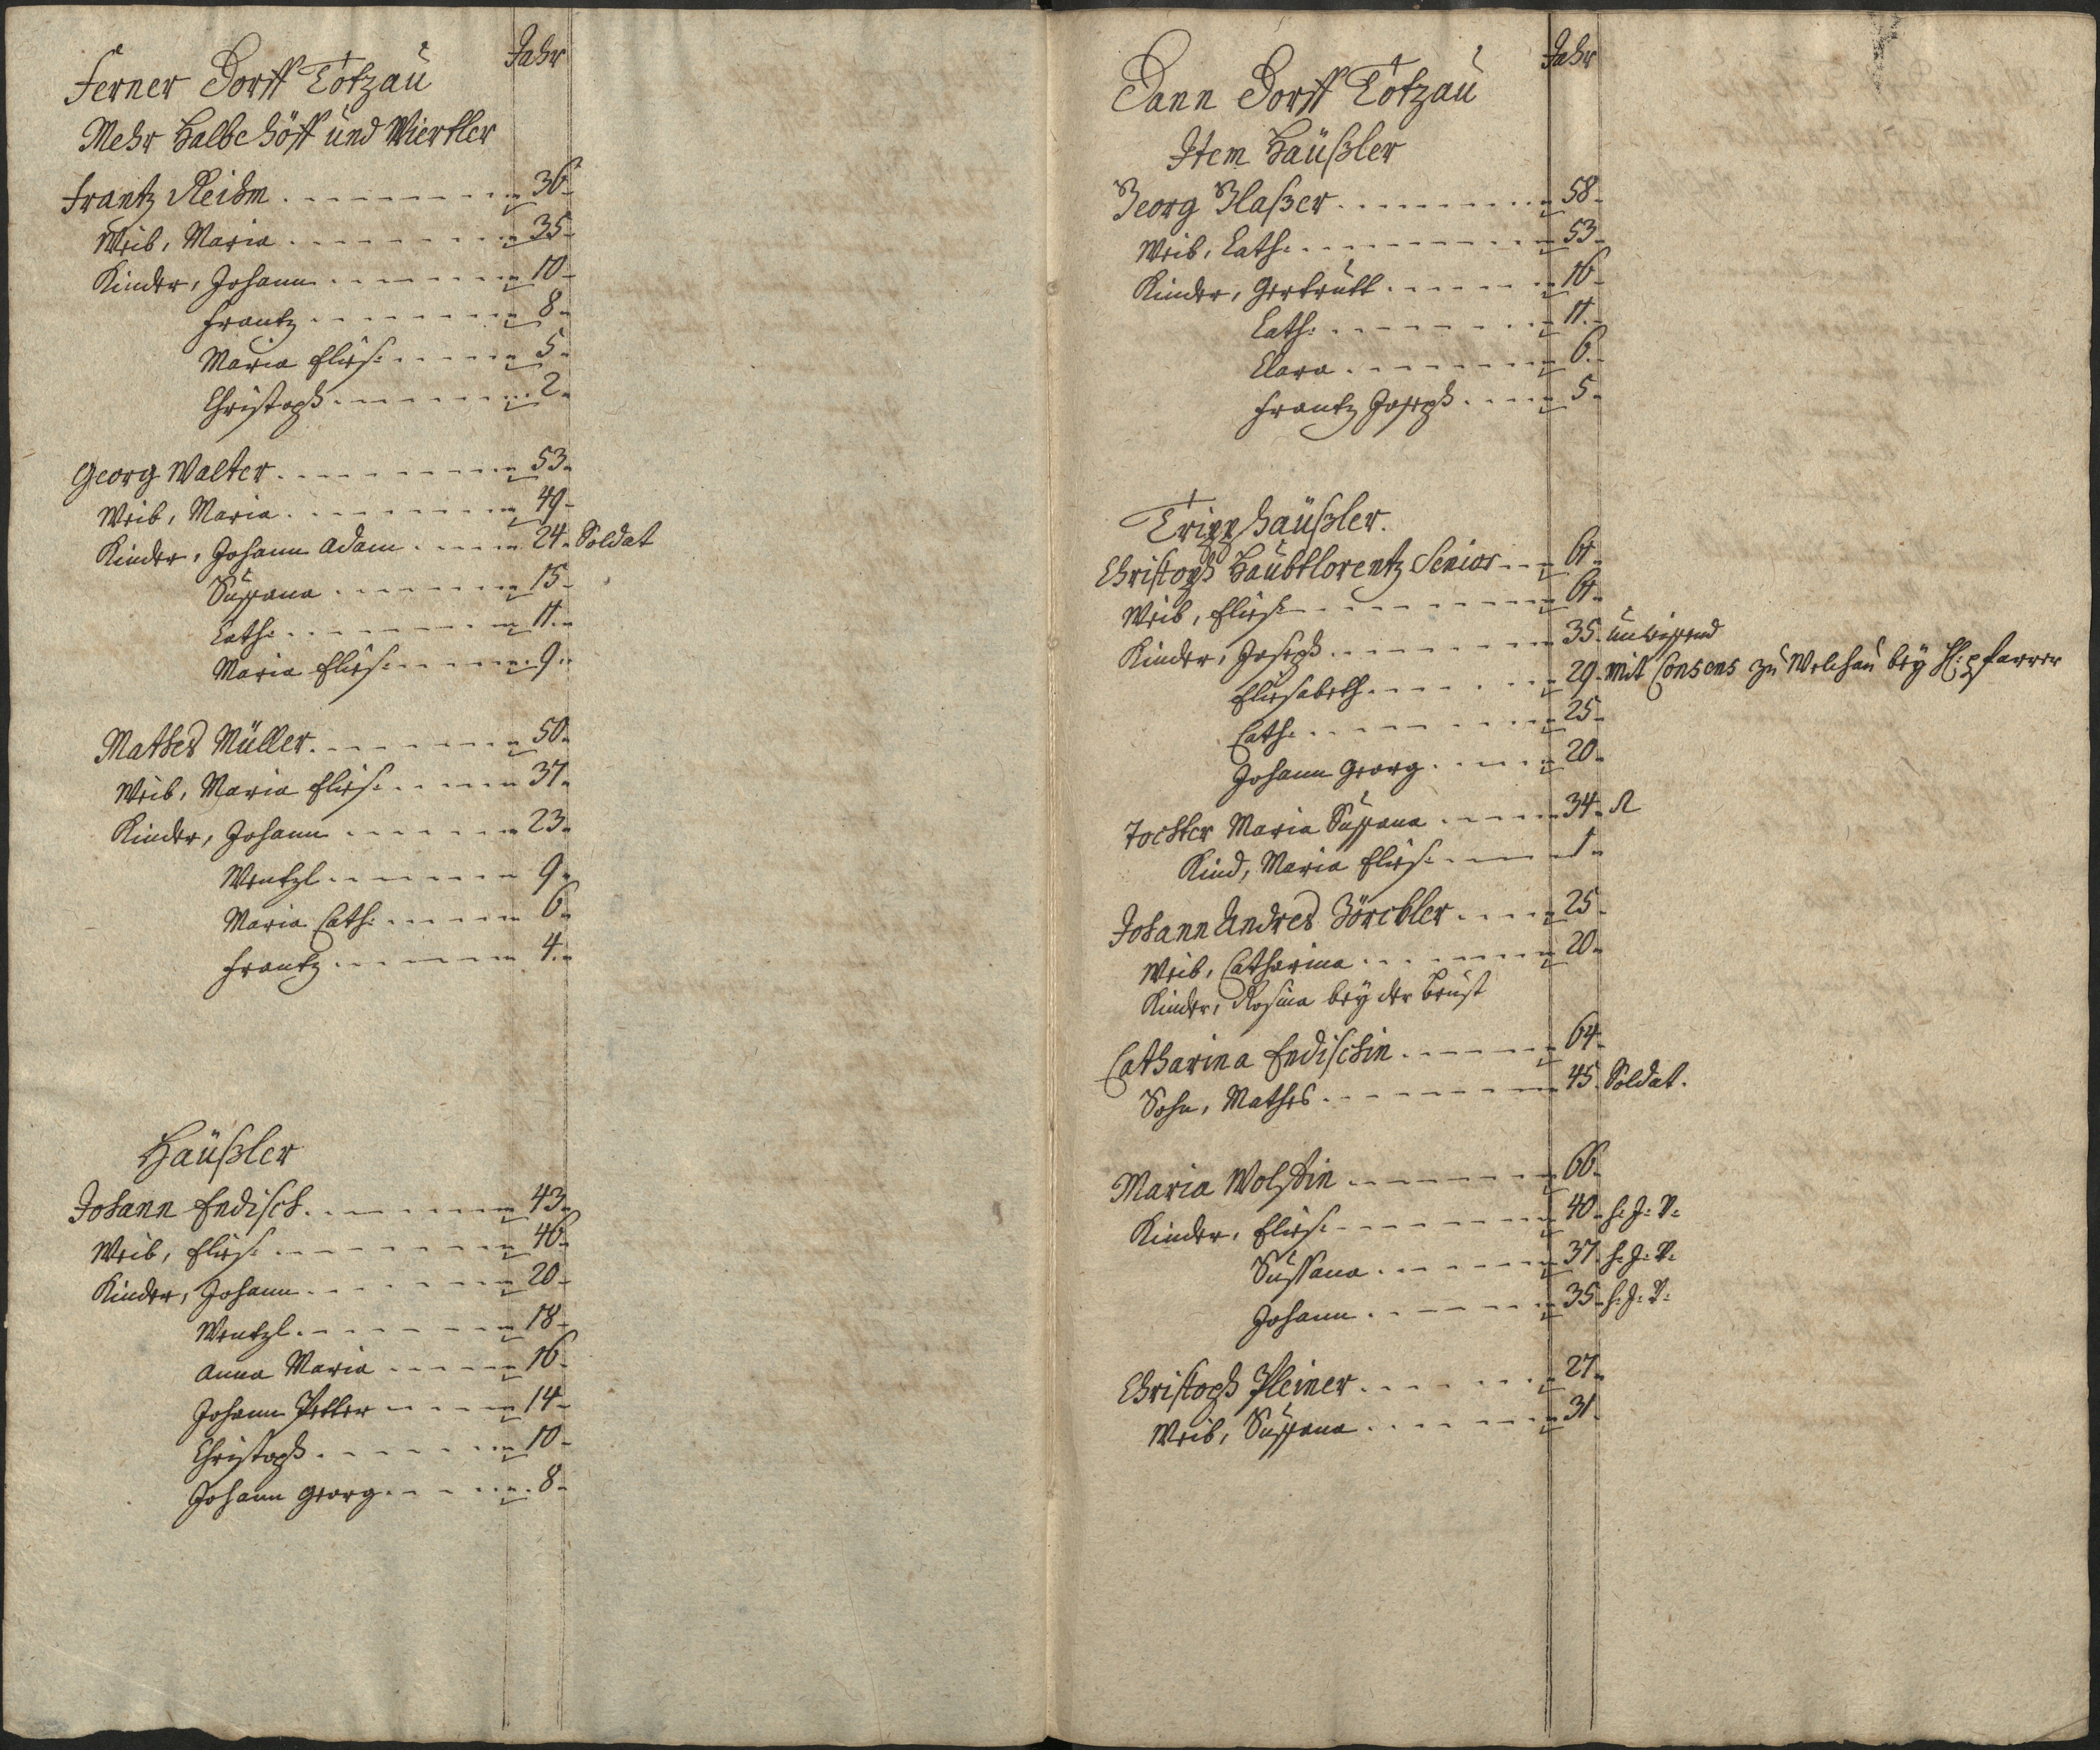 Jahr
Ferner Dorff Totzau
Mehr Halbe Höff und Viertler
Frantz Reihm 36
Weib, Maria 35
Kinder, Johann 10
Frantz 8
Maria Elies: 5
Christoph 2
Georg Walter 53
Weib, Maria 49
Kinder, Johann Adam 24 Soldat
Sussana 15
Cath: 11
Maria Elies: 9
Mathes Müller 50
Weib, Maria Elies: 37
Kinder, Johann 23
Wentzl 9
Maria Cath: 6
Frantz 4
Häußler
Johann Endisch 43
Weib, Elies: 46
Kinder, Johann 20
Wentzl 18
Anna Maria 16
Johann Petter 14
Christoph 10
Johann Georg 8
Jahr
Dann Dorff Totzau
Item Häußler
Georg Glaßer 58
Weib, Cath: 53
Kinder, Gertrutt 16
Cath: 11
Clara 6
Frantz Joseph 5
Tripphäußler.
Christoph Haubtlorentz Senior 61
Weib, Elies: 61
Kinder, Joseph 35 unwissend
Eliesabeth 29 mit Consens zu Welchau bey H: Pfarrer
Cath: 25
Johann Georg 20
Tochter Maria Sussana 34
Kind, Maria Elies: 1
Johann Andres 25
Weib, Catharina 20
Kinder, Rosina bey der Brust
Catharina Endischin 64
Sohn, Mathes 45 Soldat.
Maria 66
Kinder, Elies: 40
Sussana 37
Johann 35
Christoph Pleiner 27
Weib, Sussana 31